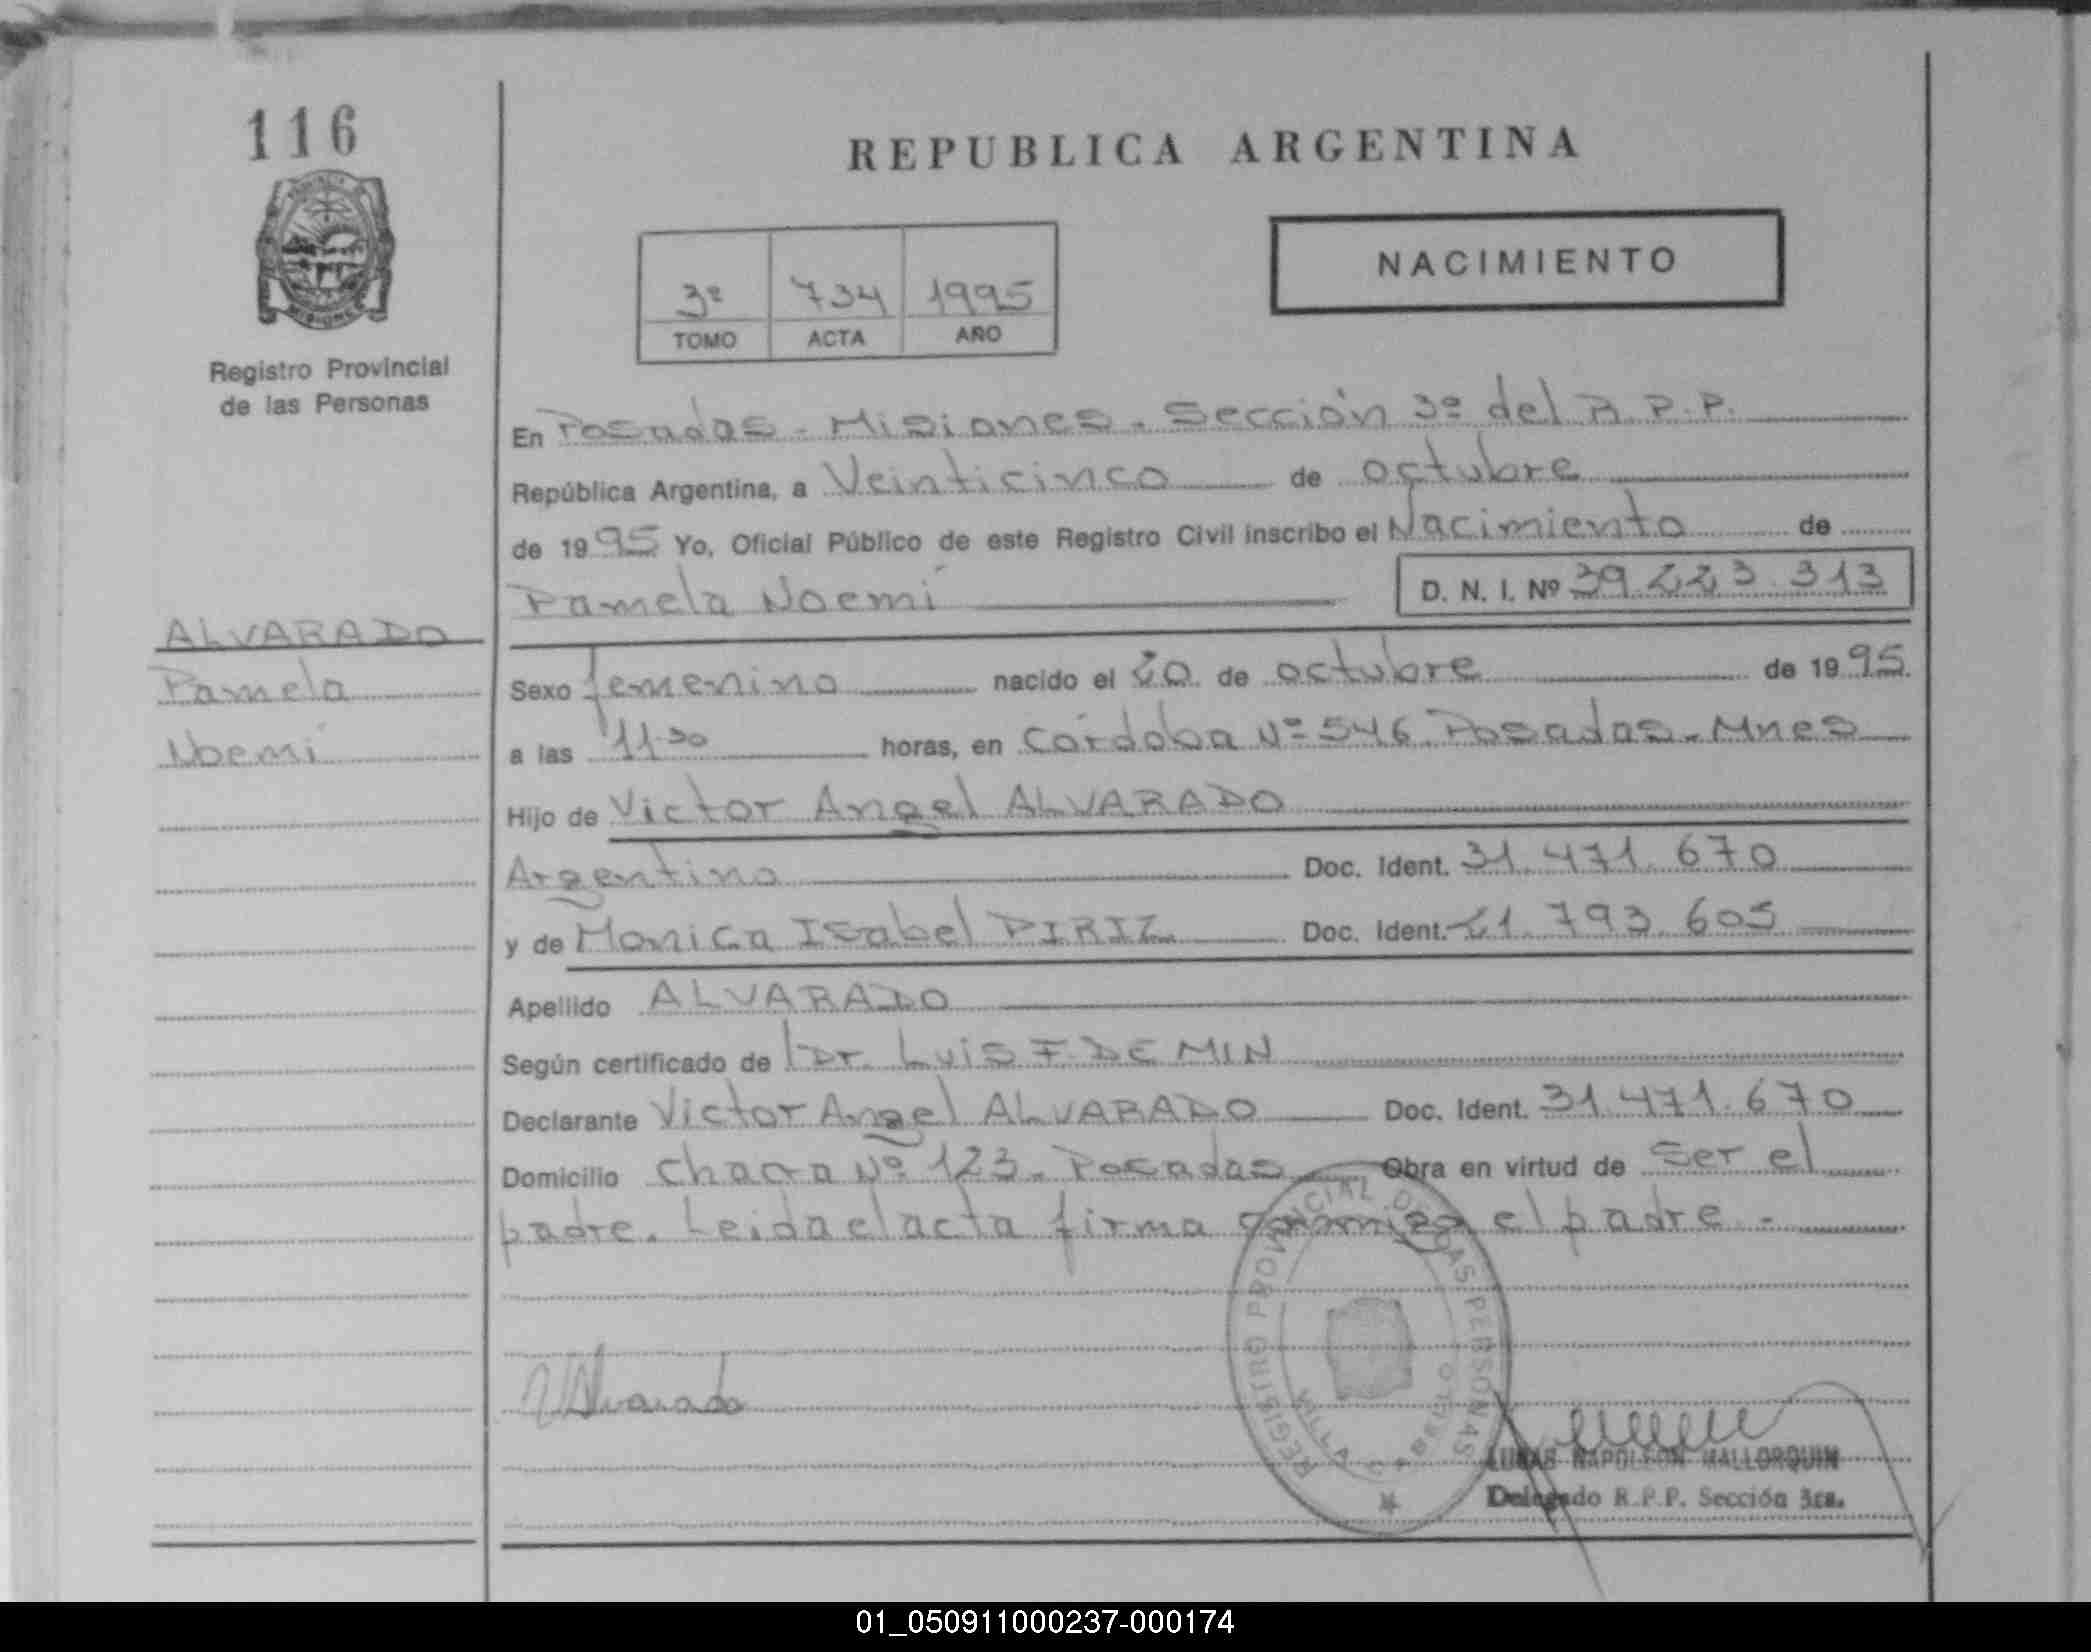 116
REPUBLICA ARGENTINA
NACIMIENTO
3º 734 1995
TOMO ACTA AÑO
Registro Provincial
de las Personas
En Posadas - Misiones. Sección 3º del R.P.P.
República Argentina, a Veinticinco de octubre
de 1995 Yo, Oficial Público de este Registro Civil inscribo el Nacimiento de
Pamela Noemí D. N. I. Nº 39.223.313
ALVARADO
Pamela
Noemí
Sexo femenino nacido el 20 de octubre de 1995.
a las 11.30 horas, en Córdoba Nº 546 Posadas - Mnes
Hijo de Victor Angel ALVARADO
Argentino Doc. Ident. 31.471.670
y de Monica Isabel PIRIZ Doc. Ident. 21.793.605
Apellido ALVARADO
Según certificado de Dr. Luis F. DE MIN
Declarante Victor Angel ALVARADO Doc. Ident. 31.471.670
Domicilio chacra Nº 123. Posadas Obra en virtud de Ser el
padre. Leida el acta firma conmigo el padre.-
REGISTRO PROVINCIAL DE LAS PERSONAS
VILLA CABELLO
VAlvarado
LUCAS NAPOLEON MALLORQUIN
Delegado R.P.P. Sección 3ra.
01_050911000237-000174